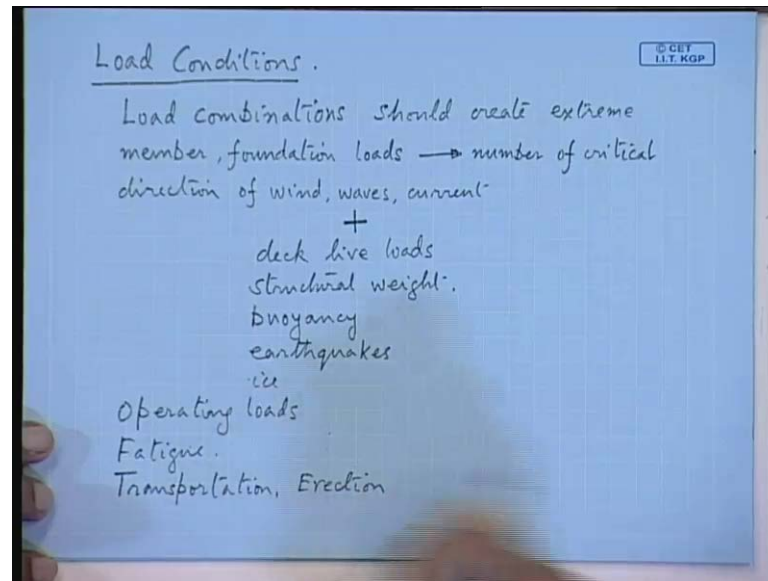 Load Conditions.
© CET
I.I.T. KGP
Load combinations should create extreme
member, foundation loads → number of critical
direction of wind, waves, current
+
deck live loads
structural weight.
buoyancy
earthquakes
ice
Operating loads
Fatigue.
Transportation, Erection